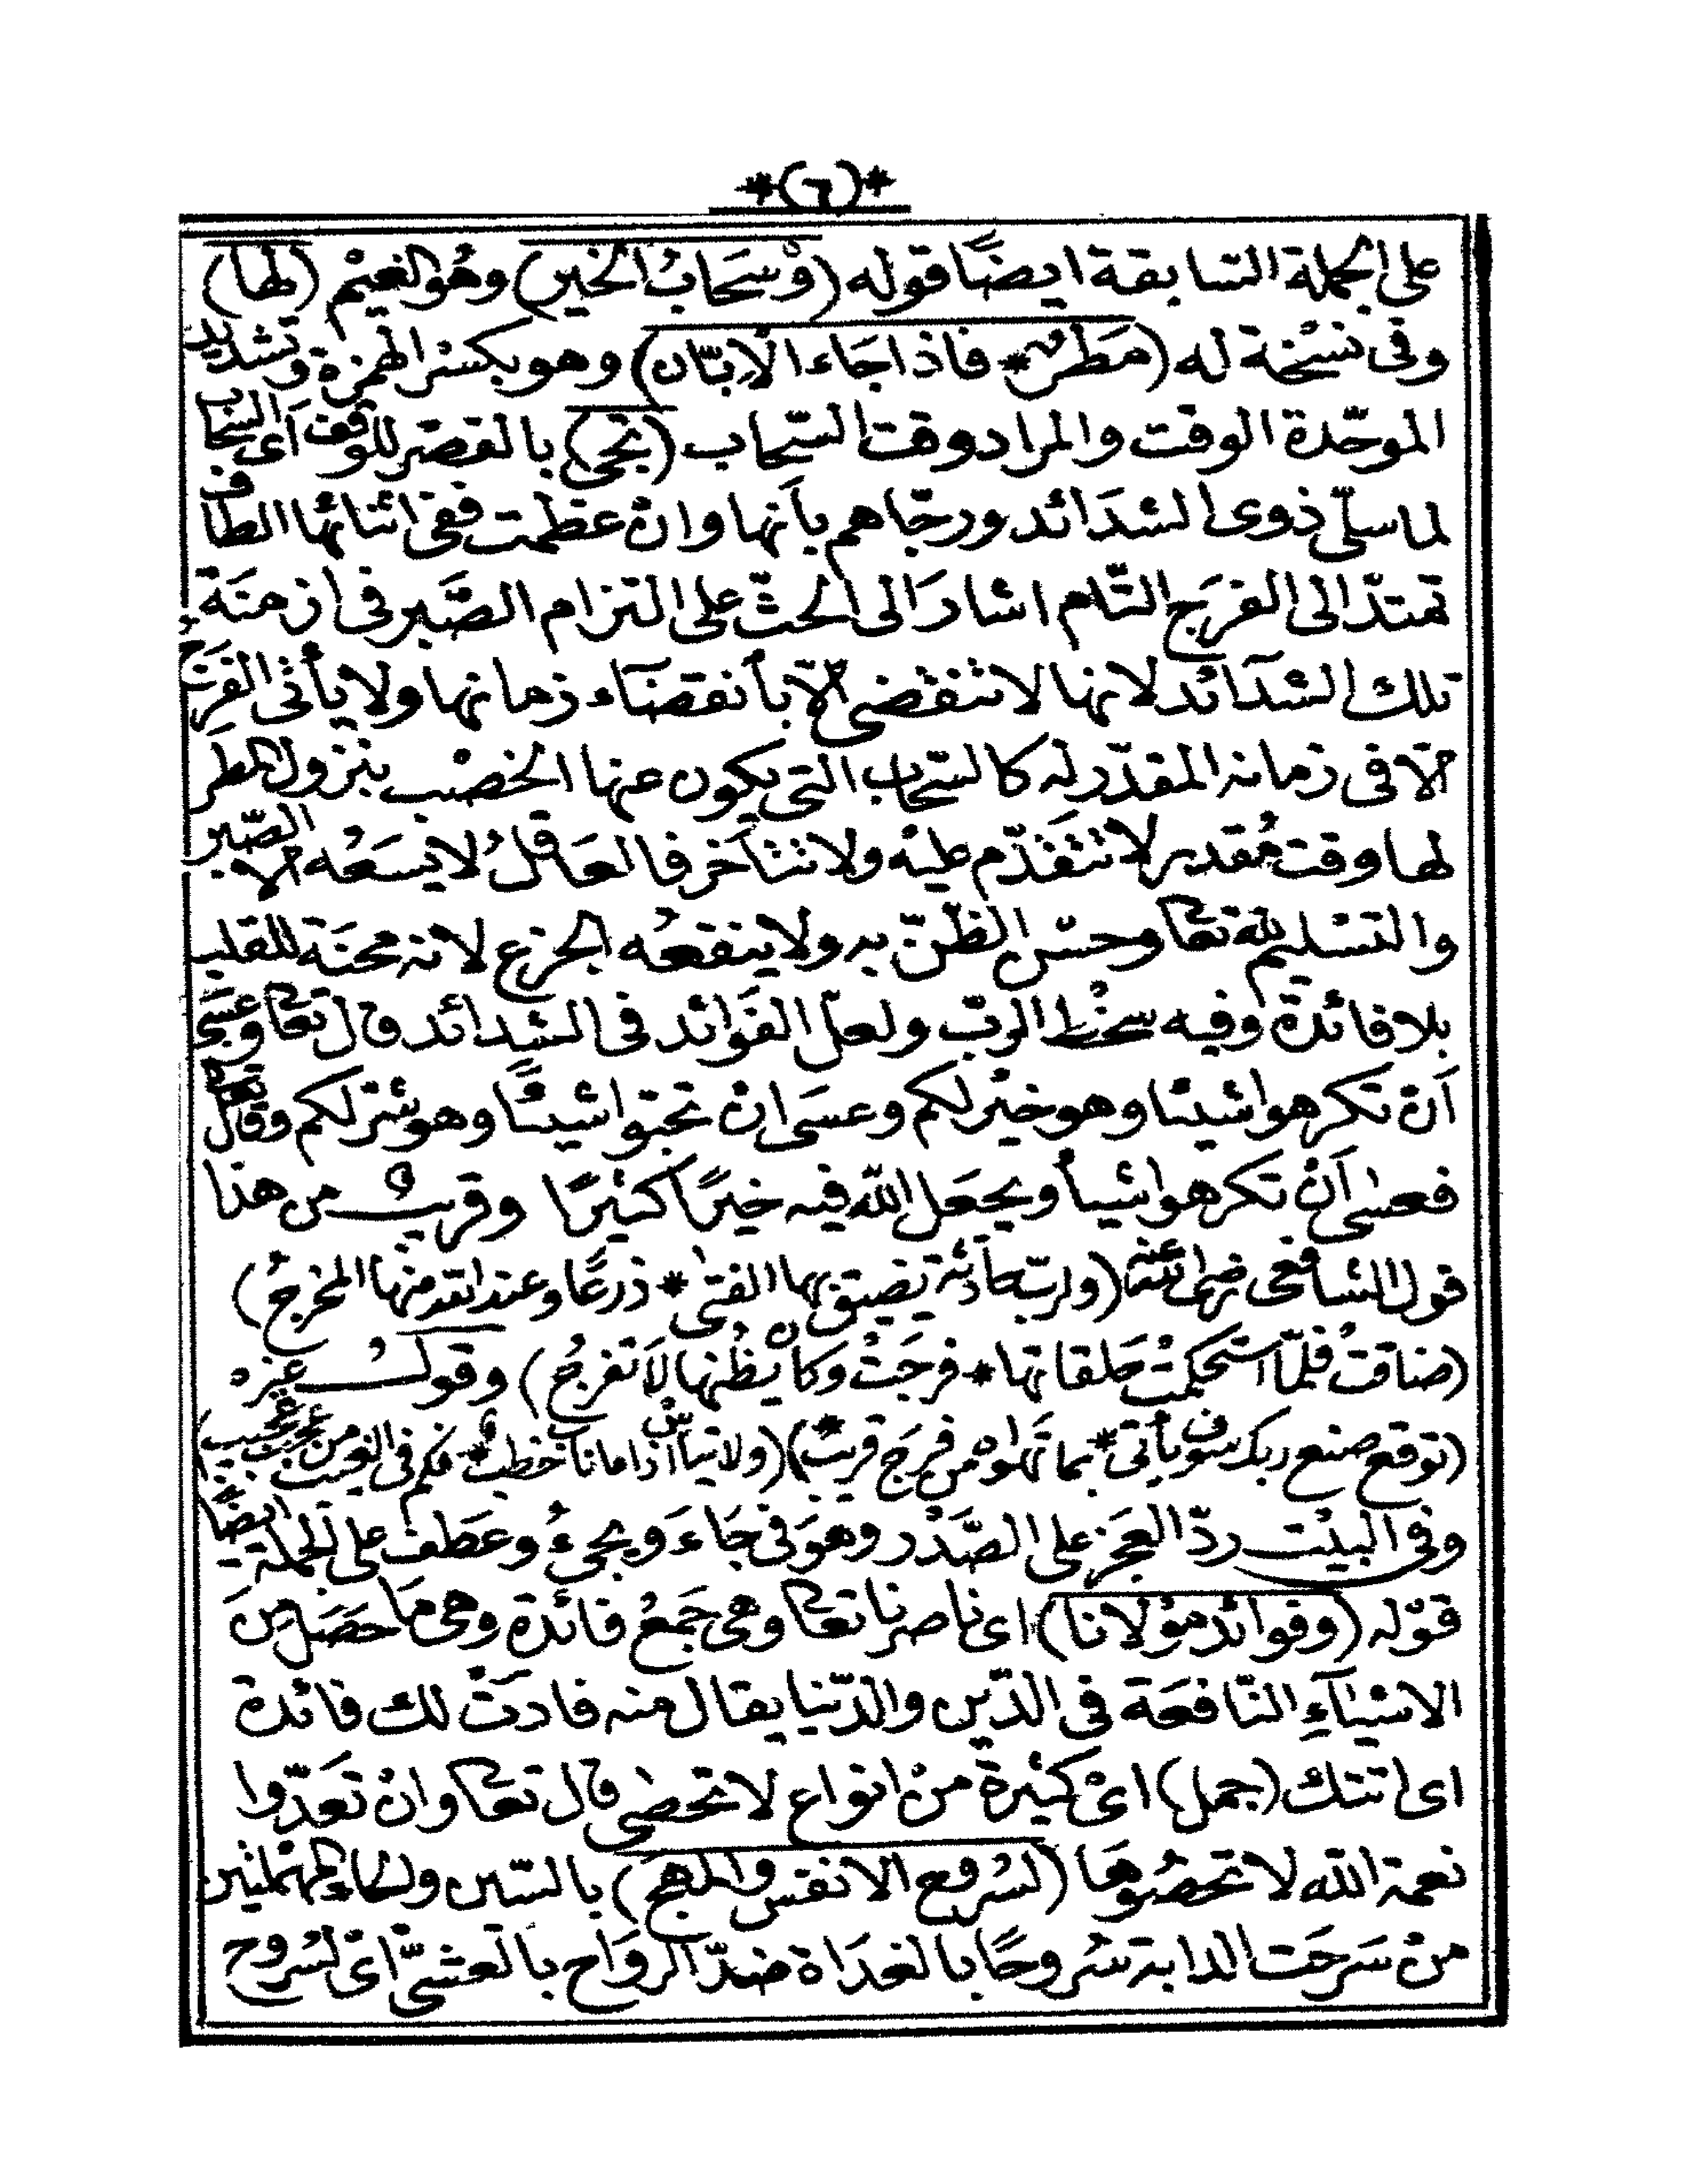 *(٦)*
على الجملة السابقة ايضًا قوله (وْسَحَابُ الخير) وهُو الغيْم (لها)
وفى نسْخة له (مَطرٌ * فاذا جَاء الاِبّان) وهو بكسْر الهمزة وتشديد
الموحّدة الوقت والمراد وقت السّحاب (تجى) بالقصْر للوقف اَى السّحاب
لما سلّى ذوى الشدَائد ورجّاهم بأنها وانْ عظمت ففى اثنائها الطاف
تمتدّ الى الفرَج التّام اشارَ الى الحثّ على التزام الصَّبر فى ازمنَة
تلك الشدَآئد لانها لا تنقضى الّا بأنقضَآء زمانها ولا يأتى الفرَجُ
الّا فى زمانه المقدّر له كالسّحاب التى يكون عنها الخصْب بنزول المطَر
لها وقت مُقدر لا تتَقدّم عليْه ولا تتأخر فالعَاقلُ لا يسَعُه الّا الصّبر
والتسْليم لله تعالى وحسْن الظّنّ به ولا ينفعُه الجزع لانه محنَة للقلب
بلا فائدة وفيه سخْط الربّ ولعلّ الفَوائد فى الشدائد قال تعالى وعسى
اَنْ تكرهوا شيئا وهو خيْر لكم وعسَى انْ تحبّوا شيئًا وهو شرّ لكم وقال تعالى
فعسٰى اَنْ تكرهوا شيأ ويجعَل الله فيه خيرًا كثيرًا وقريبٌ من هذا
قول الشافعى رضى الله عنه (ولربّ حادثة يضيق بها الفتٰى * ذرعًا وعند الله منها المخرجُ)
(ضاقت فلمّا اسْتحكمتْ حلقاتها * فرجَتْ وكان يظُنها لَا تفرجُ) وقولُ غيره
(توقع صنع ربك سوف يأتى * بما تهواه من فرَج قريبٌ *) (ولا تيأس اذا ما ناب خطبٌ * فكم فى الغيب من عجب عجيب)
وفى البيْت ردّ العَجز على الصَّدْر وهوَ فى جَاءَ ويجىءُ وعَطفَ على الجملة ايضًا
قوْله (وفوائد موْلانا) اى ناصرنا تعالى وهى جَمعُ فائدة وهى مَا حصَل من
الاشيَآءِ النّافعَة فى الدّين والدّنيا يقال منه فادَتْ لك فائدة
اى اتتكْ (جمل) اىْ كثيرة منْ انواع لا تحصٰى قال تعالى وانْ تعَدّوا
نعمة الله لا تحصُوهَا (لسُروح الانفس والمهج) بالسّين والحاء المهْملتين
منْ سَرحَت الدابة سُروحًا بالغدَاة ضدّ الروَاح بالعشىّ اىْ لسُروح